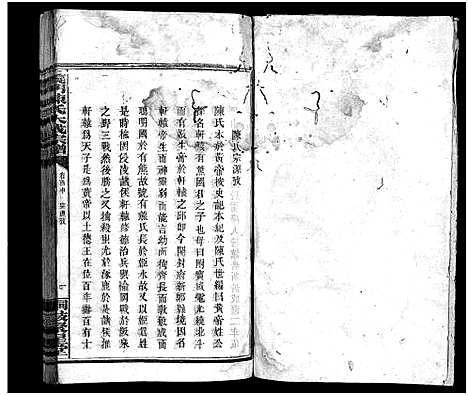 陳氏宗源攷
陳氏本於黃帝按史記本紀及陳氏世編曰黃帝姓公
孫名軒轅有熊國君之子也母曰附寳感電光繞北斗
而有娠生帝於軒轅之邱卽今開封新鄭縣境因名
軒轅帝生而神靈弱而能言幼而齊長而敦敏成而
聰明國於有熊故號有熊氏長於姬水故以姬爲姓
是時榆罔侵陵諸侯軒轅修德治兵與榆罔戰於阪泉
之三戰然後勝之又殺蚩尤於涿鹿於是諸侯推
軒轅爲天子是爲黃帝以土德王在位百年壽百有十
義門陳氏大成宗譜
卷首中
宗源攷
一